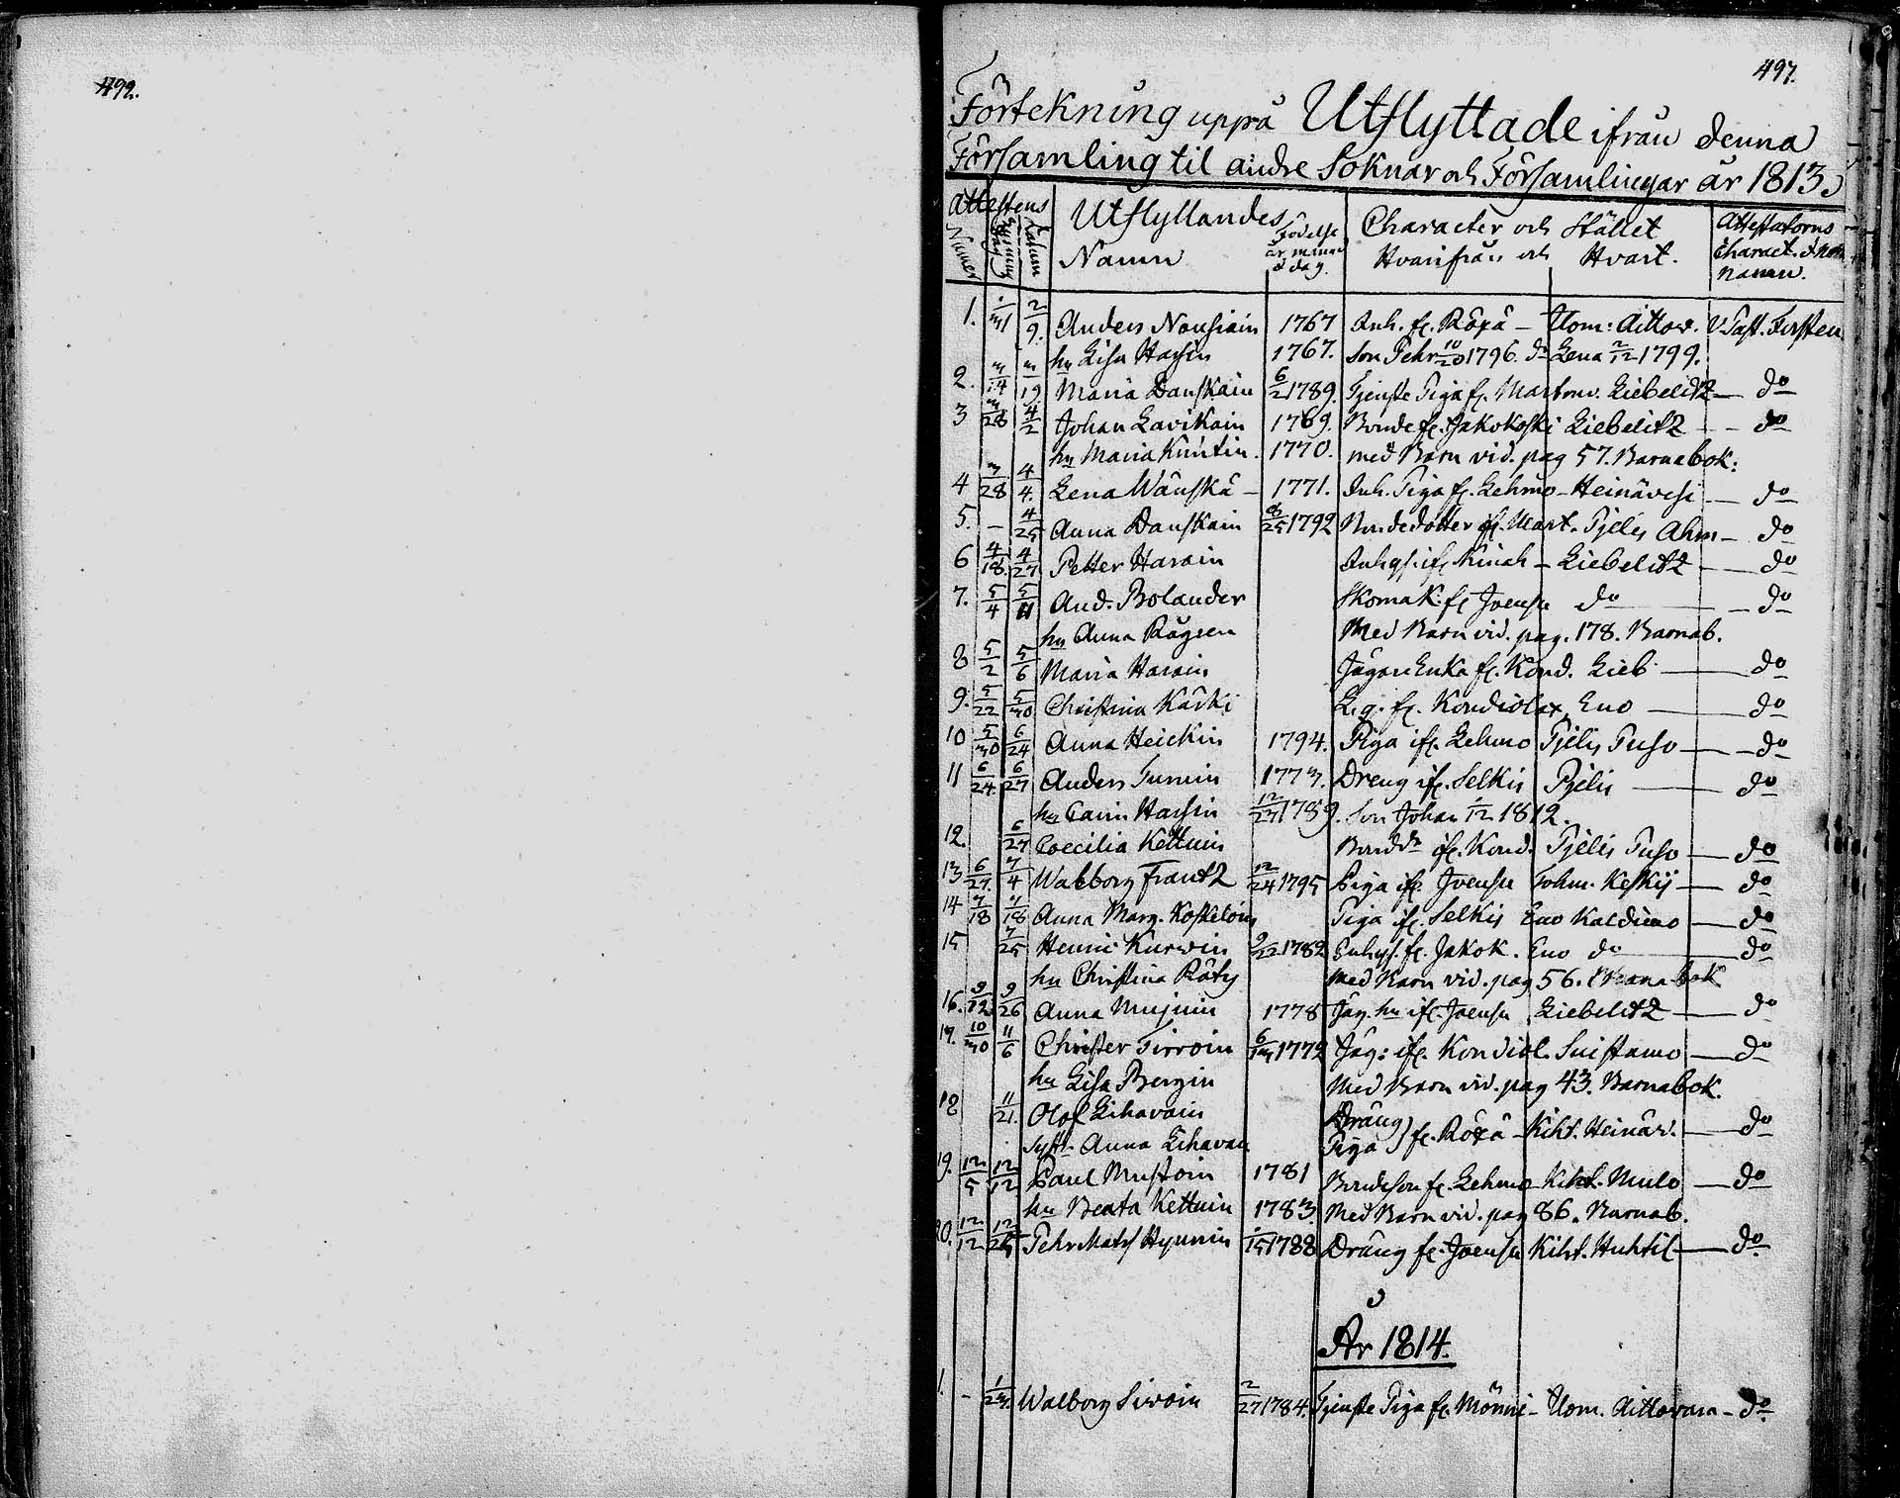 492.
497.
Förtekning uppå Utflyttade ifrån denna
Församling til andre Soknar och Församlingar år 1813.
Attestens Utflyttandes Födelse Character och Stället Attestatorns
Numer Datum Namn år månad & dag. Hvarifrån och Hvart. Charact. & Namn.
1. 2/9. Anders Nousiain 1767 Inh. fr. Röxä – Ilom: Aittov. V. Past. Forsten
hu Lisa Hassin 1767. Son Pehr 10/20 1796. do Lena 2/12 1799.
2. 3/14 3/19 Maria Danskain 6/2 1789. Tjenste Piga fr. Martonv. Liebelitz — do
3 3/28 4/2 Johan Lavikain 1769. Bonde fr. Jakokoski Liebelitz — do
hu Maria 1770. med Barn vid. pag 57. Barnabok:
4 3/28 4/4. Lena Wänskä – 1771. Inh. Piga fr. Lehmo – Heinävesi — do
5. – 4/25 Anna Danskain 8/25 1792 Bondedotter ifr. Mart. Pjelis Ahm — do
6 4/18. 4/27 Petter Haroin Inhys. ifr. Kinah – Liebelitz — do
7. 5/4 5/11 And. Bolander Skomak. fr Joensu do — do
hu Anna Rågeen Med Barn vid. pag. 178. Barnab.
8 5/2 5/6 Maria Haroin Jägare Enka fr. Kond. Lieb. — do
9. 5/22 5/30 Christina Kärki L.g. fr. Kondiolax Eno — do
10 5/30 6/24 Anna Heickin 1794. Piga ifr. Lehmo Pjelis Puso — do
11 6/24 6/27 Anders Turuin 1773. Dreng ifr. Selkis Pjelis — do
hu Carin Hassin 12/27 1789. Son Johan 1/12 1812.
12. 6/27 Coecilia Kettuin Bondd. ifr. Kond. Pjelis Puso — do
13 6/27. 7/4 Walborg Frantz 12/24 1795 Piga ifr. Joensu Tohm. Keskij — do
14 7/18 7/18 Anna Marg. Piga ifr. Selkis Eno Kaldimo — do
15 7/25 Henric Kurwin 9/22 1782 Inhys. fr. Jakok. Eno do — do
hu Christina Räty Med Barn vid. pag 56. Barnabok
16. 9/12 9/26 Anna Mujuin 1778 Jäg. hu ifr. Joensu Liebelitz — do
17. 10/30 11/6 Christer Tirroin 1772 Jäg: ifr. Kondiol. Suistamo — do
hu Lisa Bergin Med Barn vid. pag 43. Barnabok.
18 11/21. Olof Lihavain Dräng
Syst. Anna Lihavain Piga } fr. Röxä – Kiht. Heinäv. — do
19. 12/5 12/12 Paul Mustoin 1781 Bondeson fr. Lehmo Kiht. Mulo — do
hu Beata Kettuin 1783. Med Barn vid. pag 86. Barnab.
20. 12/12 Pehr Mats Hynnin 1/15 1788 Dräng fr. Joensu Kiht. Huhtil — do.
År 1814.
1. – Walborg Siroin 2/27 1784. Tjenste Piga fr. Mönni – Ilom. Aittovara – do